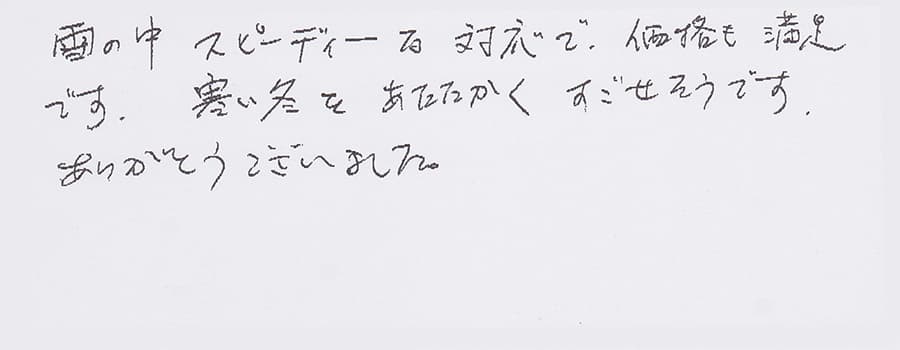 雪の中 スピーディーな 対応で、価格も 満足
です. 寒い冬を あたたかく すごせそうです.
ありがとうございました。